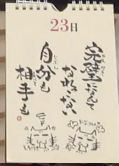 23日
完璧になんて
なれない
自分も
相手も